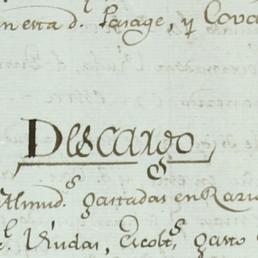 en esta d. Parage, y Cova
Descargo
Almud.s gastadas en Razio
l. Viudas, Escolt.s, gasto